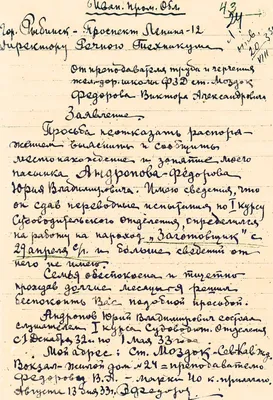 Иван. пром. Обл
43
гор. Рыбинск - Проспект Ленина - 12
Директору Речного Техникума
От преподавателя труда и черчения
жел-дор. школы ФЗД ст. Моздок
Федорова Виктора Александровича
Заявление
Просьба не отказать распоря-
жением выяснить и сообщить
место нахождение и занятие моего
пасынка Андропова-Федорова
Юрия Владимировича. Имею сведения, что
он сдав переводные испытания по I курсу
Судоводительского Отделения, определился
на работу на пароход „Заготовщик" с
29 апреля с/г. и больше сведений от
него не имею.
Семья обеспокоена и тщетно
прождав долгие месяцы - я решил
беспокоить Вас подобной просьбой.
Андропов Юрий Владимирович состоял
слушателем I курса Судоводит. Отделения
с 1 Декабря 32 г. по 1 мая 33 года
Мой адрес: ст. Моздок - Сев-Кав жд.
Вокзал - жилой дом № 24 = преподавателю
Федорову В.А. - марки 40 к. прилагаю.
Августа 13 дня 33 г. В Федоров